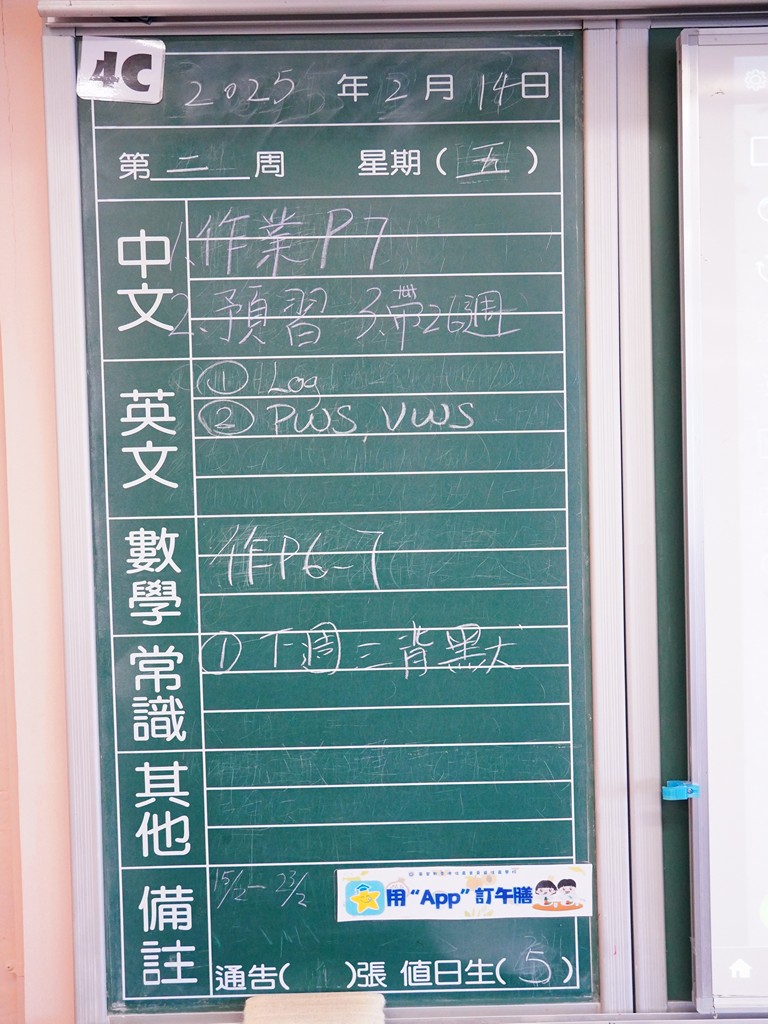 4C
2025 年 2 月 14 日
第 二 周 星期 ( 五 )
中文
1. 作業 P7
2. 預習 3. 帶26週
英文
① Log
② PWS, VWS
數學
作P6-7
常識
① 下週三背默
其他
備註
15/2 - 23/2
用“App”訂午膳
通告( )張 值日生( 5 )